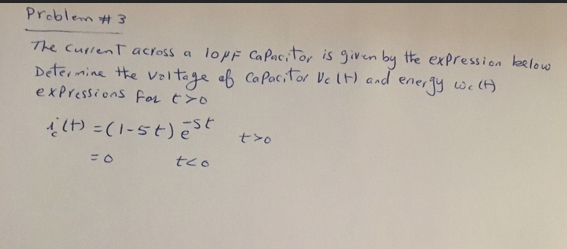 Problem # 3
The current across a 10µF capacitor is given by the expression below
Determine the voltage of capacitor Vc(t) and energy wc(t)
expressions for t>0
ic(t) = (1-5t) e^-5t t>0
= 0 t<0